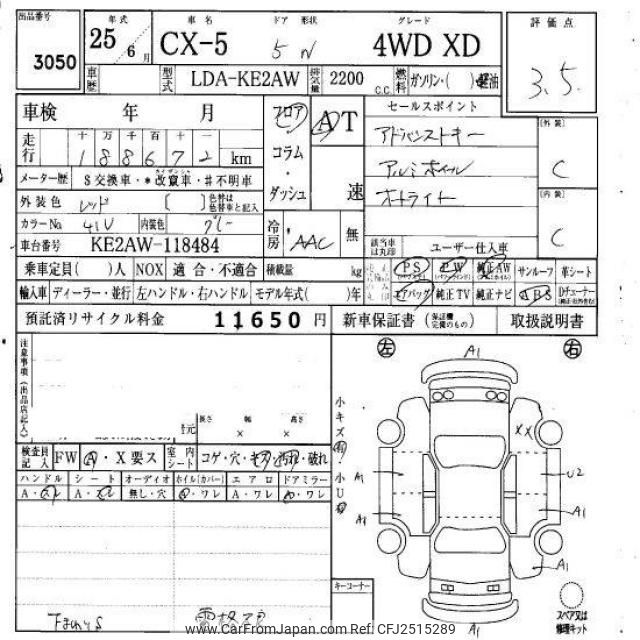 出品番号 3050
年式 25 6月
車名 CX-5
ドア 形状 5
グレード 4WD XD
評価点 3.5
車歴
型式 LDA-KE2AW
排気量 2200 C.C.
燃料 ガソリン・( ) 軽油
車検 年 月
フロア
コラム
・
ダッシュ
AT
速
セールスポイント
アドバンストキー
アルミホイル
オートライト
[外装] C
[内装] C
走行 十 万 千 百 十 一
188672 km
メーター歴 $交換車・*改竄車・#不明車
外装色 レッド [ ] 色替は色替車と記入
カラーNo. 41V 内装色 グレー
車台番号 KE2AW-118484
冷房 AAC 無
該当車は丸印
ユーザー仕入車
乗車定員( )人 NOX 適合・不適合 積載量 kg
PS PW 純正AW サンルーフ 革シート
輸入車 ディーラー・並行 左ハンドル・右ハンドル モデル年式( )年
エアバッグ 純正TV 純正ナビ ABS Dチューナー
預託済リサイクル料金 11650 円
新車保証書 (保証欄完備のもの) 取扱説明書
注意事項(出品店記入)
長さ 幅 高さ
× ×
検査員記入 FW A・X要ス 室内シート コゲ・穴・キズ・汚れ・破れ
ハンドル シート オーディオ ホイル(カバー) エアロ ドアミラー
A・スレ A・スレ 無し・穴 A・ワレ A・ワレ A・ワレ
左 右
A1
小キズ有・小U有
XX
A1 U2
A1 A1
A1
A1
キーコーナー
スペア又は修理キット
www.CarFromJapan.com Ref: CFJ2515289